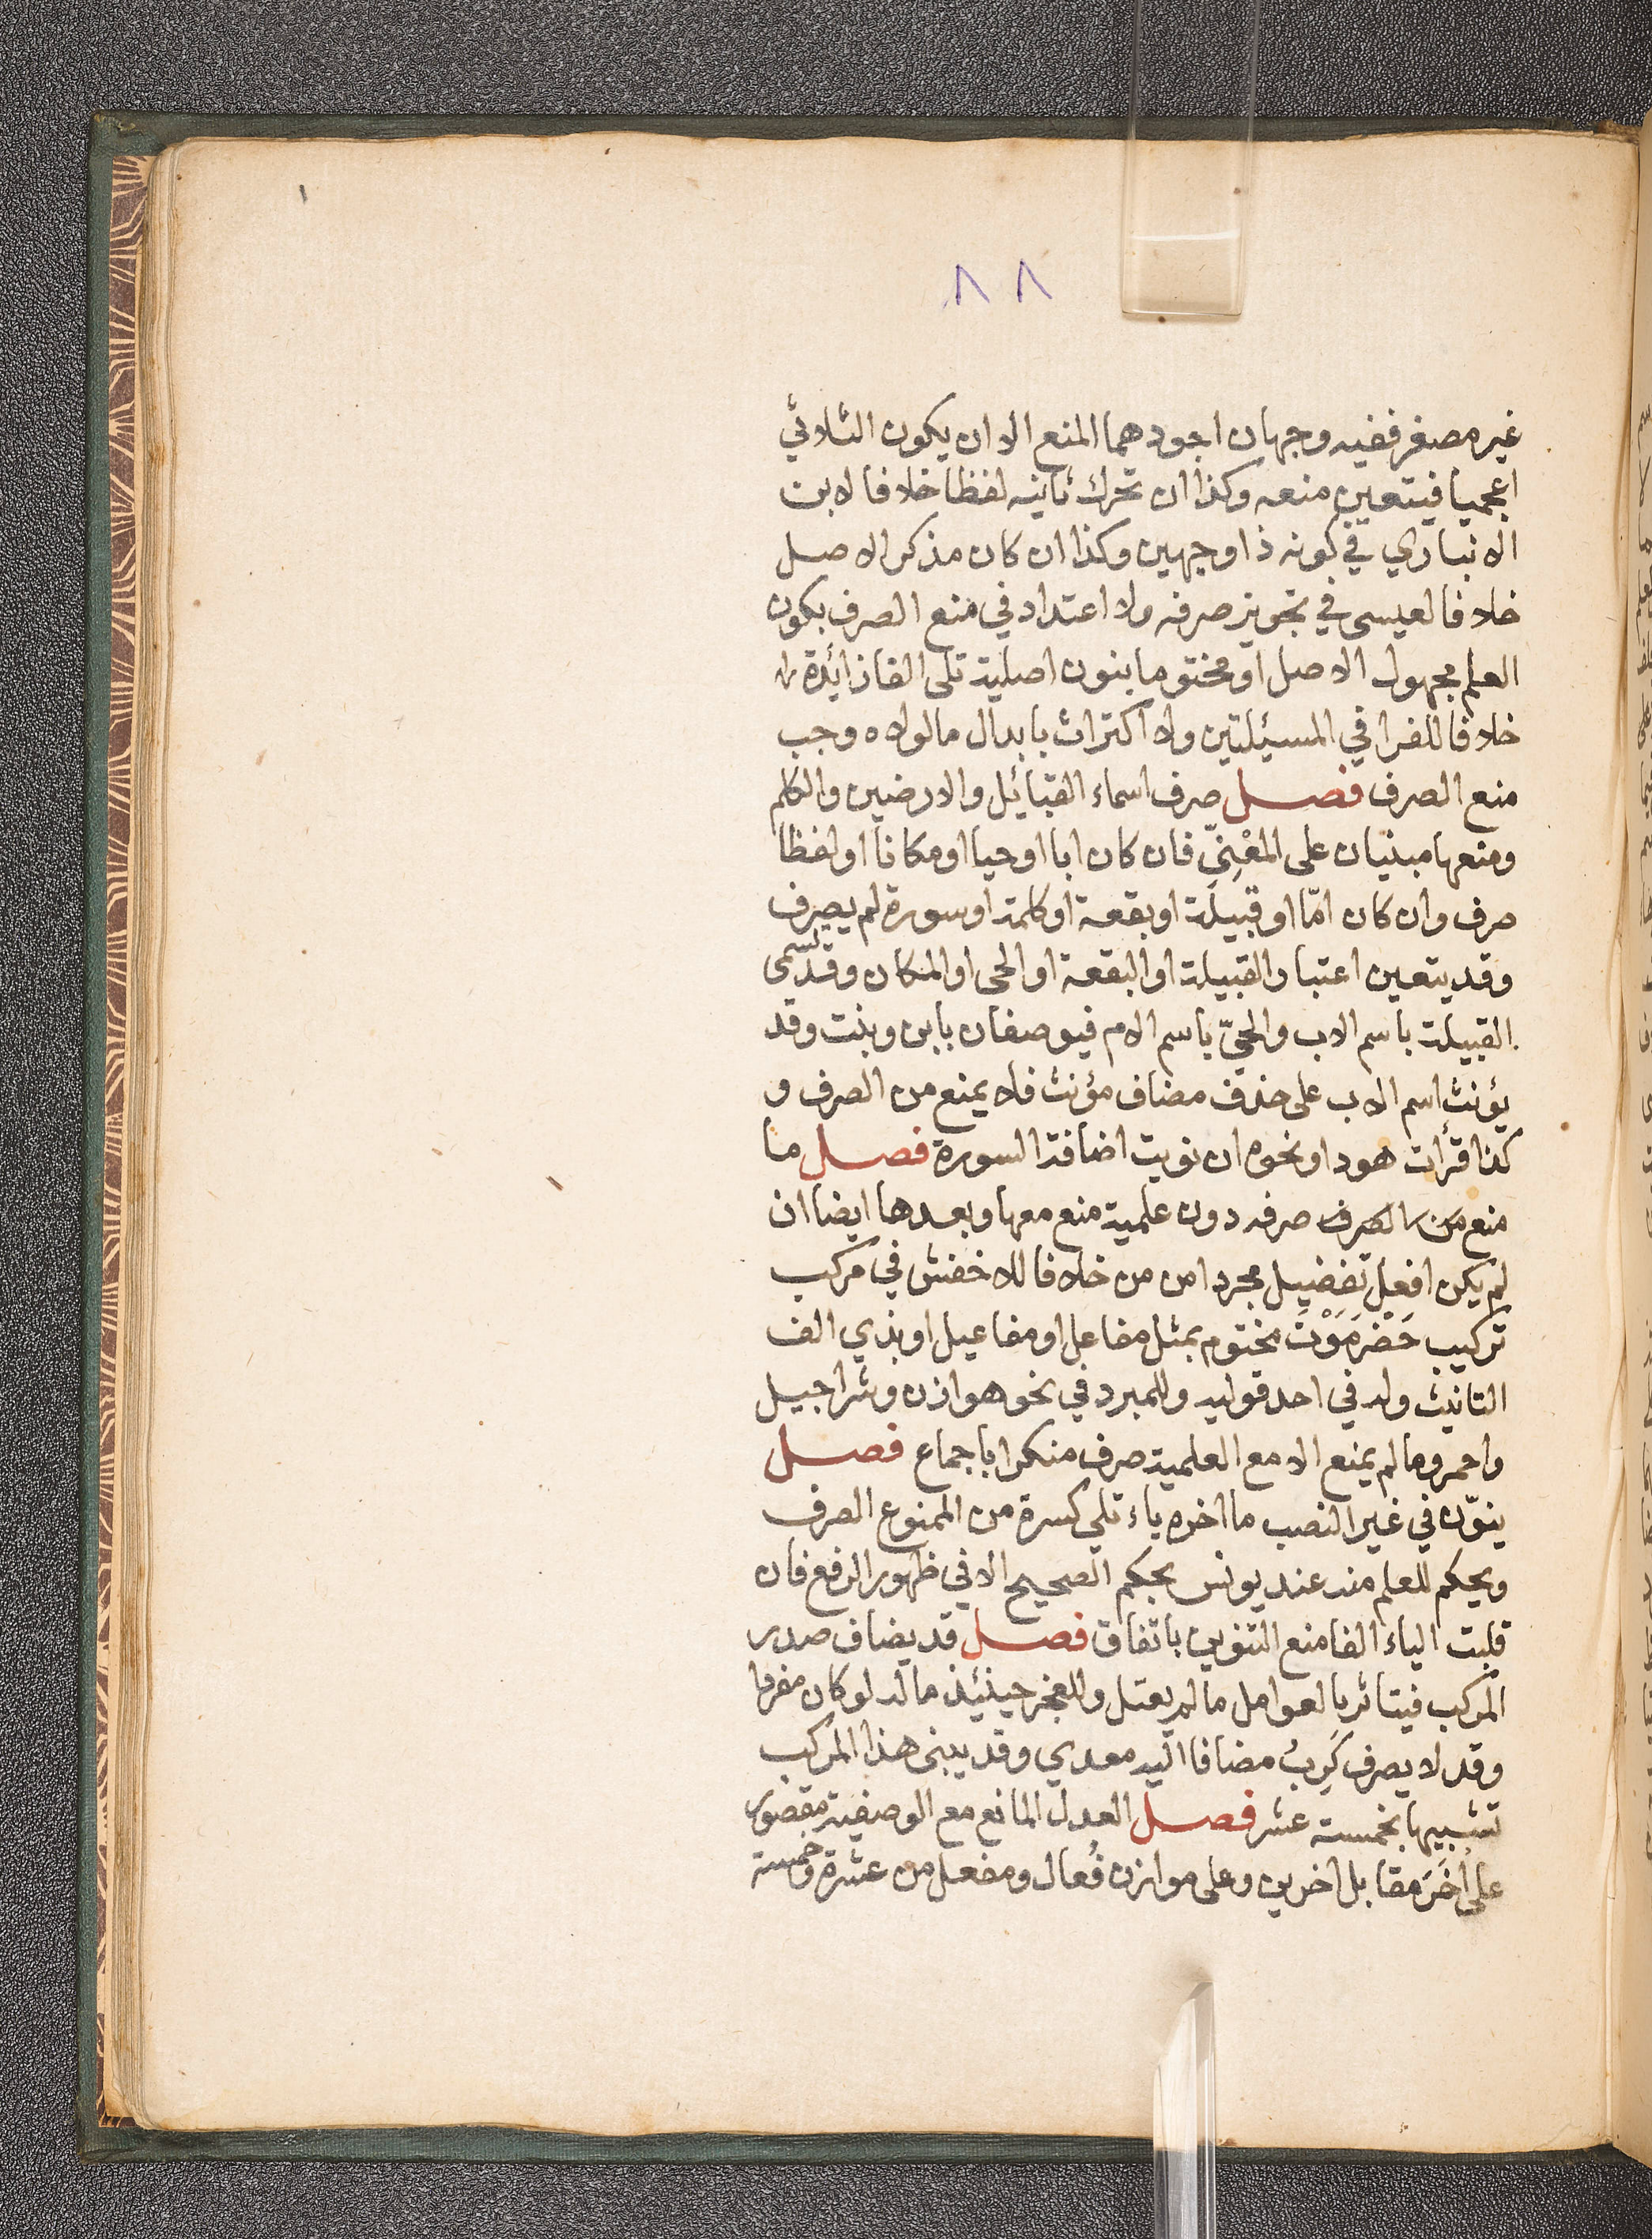 ٨٨
غير مصغر ففيه وجهان اجودهما المنع الا ان يكون الثلاثي
اعجميا فيتعين منعه وكذا ان تحرك ثانيه لفظا خلافا لابن
الانباري في كونه ذا وجهين وكذا ان كان مذكر الاصل
خلافا لعيسى في تجويز صرفه ولا اعتداد في منع الصرف بكون
العلم مجهول الاصل او مختوما بنون اصلية تلى الفا زائدة
خلافا للفرا في المسئيلتين ولا اكتراث بابدال ما لولاه وجب
منع الصرف فصل صرف اسماء القبائيل والارضين والكلم
ومنعها مبنيان على المعْنِيّ فان كان ابا او حيا او مكانا او لفظا
صرف وان كان امّا او قبيلة او بقعة او كلمة او سورة لم يصرف
وقد يتعين اعتبار القبيلة او البقعة او الحى او المكان وقد تسمى
القبيلة باسم الاب والحيّ باسم الام فيوصفان بابن وبنت وقد
يؤنث اسم الاب على حذف مضاف مؤنث فلا يمنع من الصرف و
كذا قرأت هودا ونحوه ان نويت اضافة السورة فصل ما
منع من الصرف صرفه دون علمية منع معها وبعدها ايضا ان
لم يكن افعل تفضيل مجردا من من خلافا للاخفش في مركب
تركيب حَضْرَمَوْتَ مختوم بمثل مفاعل او مفاعيل او بذي الف
التانيث وله في احد قوليه وللمبرد في نحو هوازن وشراحيل
واحمر وما لم يمنع الا مع العلمية صرف منكرا باجماع فصل
ينوّن في غير النصب ما اخره ياء تلي كسرة من الممنوع الصرف
ويحكم للعلم منه عند يونس بحكم الصحيح الا في ظهور الرفع فان
قلبت الياء الفا منع التنوين باتفاق فصل قد يضاف صدر
المركب فيتاثر بالعوامل ما لم يعتل وللعجز حينئيذ ما له لو كان مفردا
وقد لا يصرف كَرِبُ مضافا اليه معدي وقد يبنى هذا المركب
تشبيها بخمسة عشر فصل العدل المانع مع الوصفية مقصور
على اُخَرَ مقابل اخرين وعلى موازن فُعال ومفعل من عشرة وخمسة